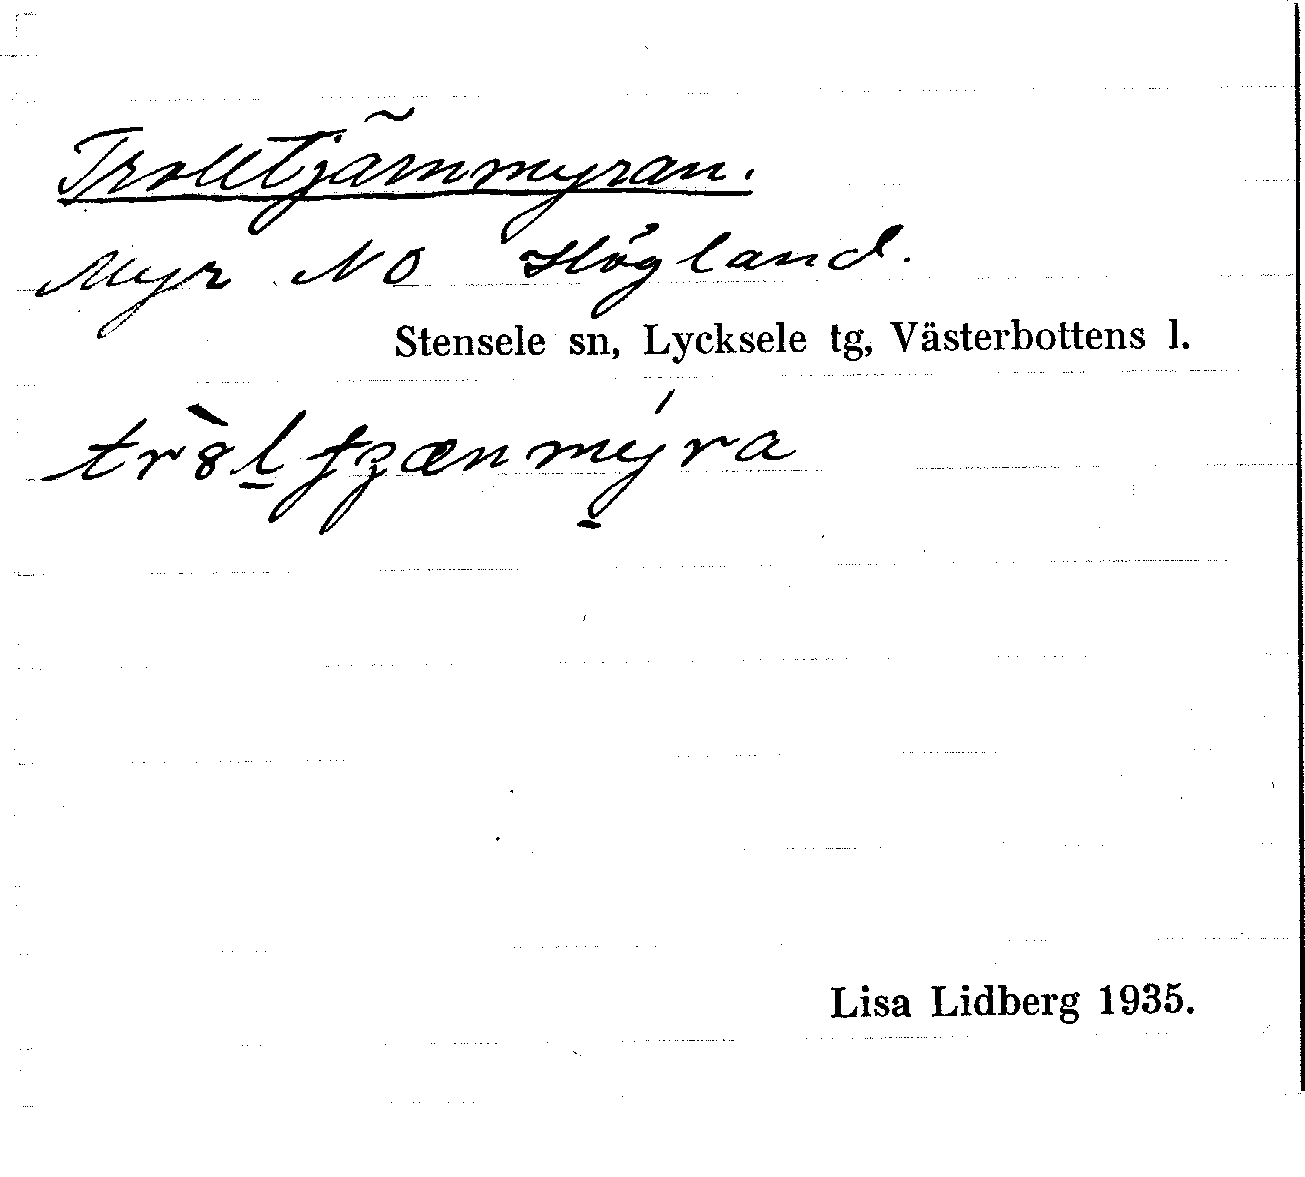 Trolltjärnmyran.
Myr NO Högland.
Stensele sn, Lycksele tg, Västerbottens l.
Lisa Lidberg 1935.